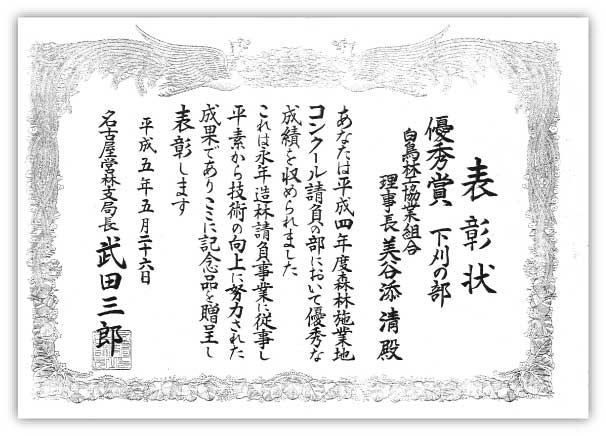 表彰状
優秀賞 下刈の部
白鳥林工協業組合
理事長 美谷添 清 殿
あなたは平成四年度森林施業地
コンクール請負の部において優秀な
成績を収められました
これは永年造林請負事業に従事し
平素から技術の向上に努力された
成果でありここに記念品を贈呈し
表彰します
平成五年五月二十六日
名古屋営林支局長 武田三郎